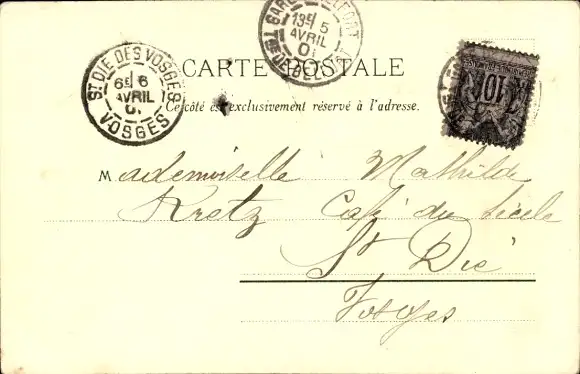 GARE BELFORT
13E 5
AVRIL
01
Tre DE BELFORT
ST DIE DES VOSGES
6E 6
AVRIL
01
VOSGES
CARTE POSTALE
Ce côté est exclusivement réservé à l'adresse.
10
Mademoiselle Mathilde
Kretz Café du siècle
St Dié
Vosges